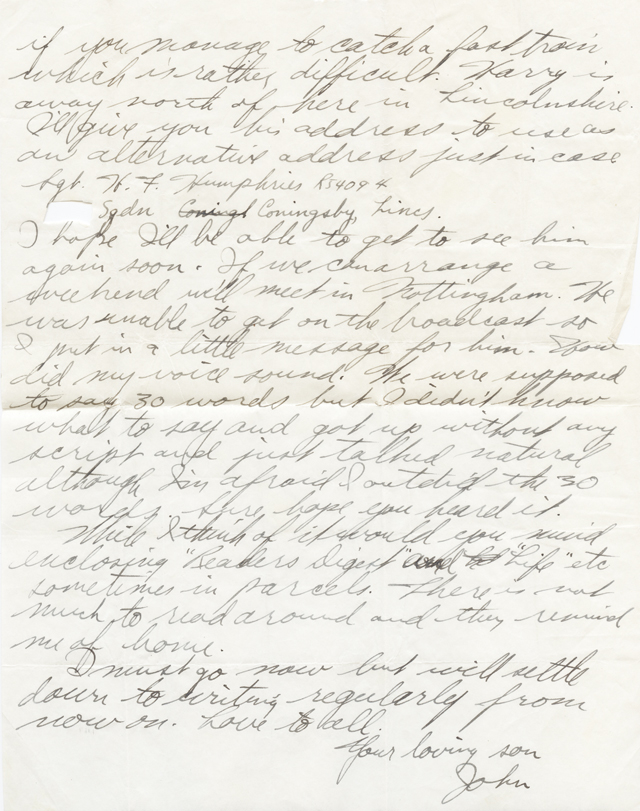 if you manage to catch a fast train
which is rather difficult. Harry is
away north of here in Lincolnshire.
I'll give you his address to use as
an alternative address just in case
Sgt. H. F. Humphries R54094
Sqdn Coningsby, Lincs.
I hope I'll be able to get to see him
again soon. If we can arrange a
weekend will meet in Nottingham. He
was unable to get on the broadcast so
I put in a little message for him. How
did my voice sound. We were supposed
to say 30 words but I didn't know
what to say and got up without any
script and just talked natural
although I'm afraid I outdid the 30
words. Sure hope you heard it.
While I think of it would you mind
enclosing "Readers Digest" "Life" etc
sometimes in parcels. There is not
much to read around and they remind
me of home.
I must go now but will settle
down to writing regularly from
now on. Love to all.
Your loving son
John